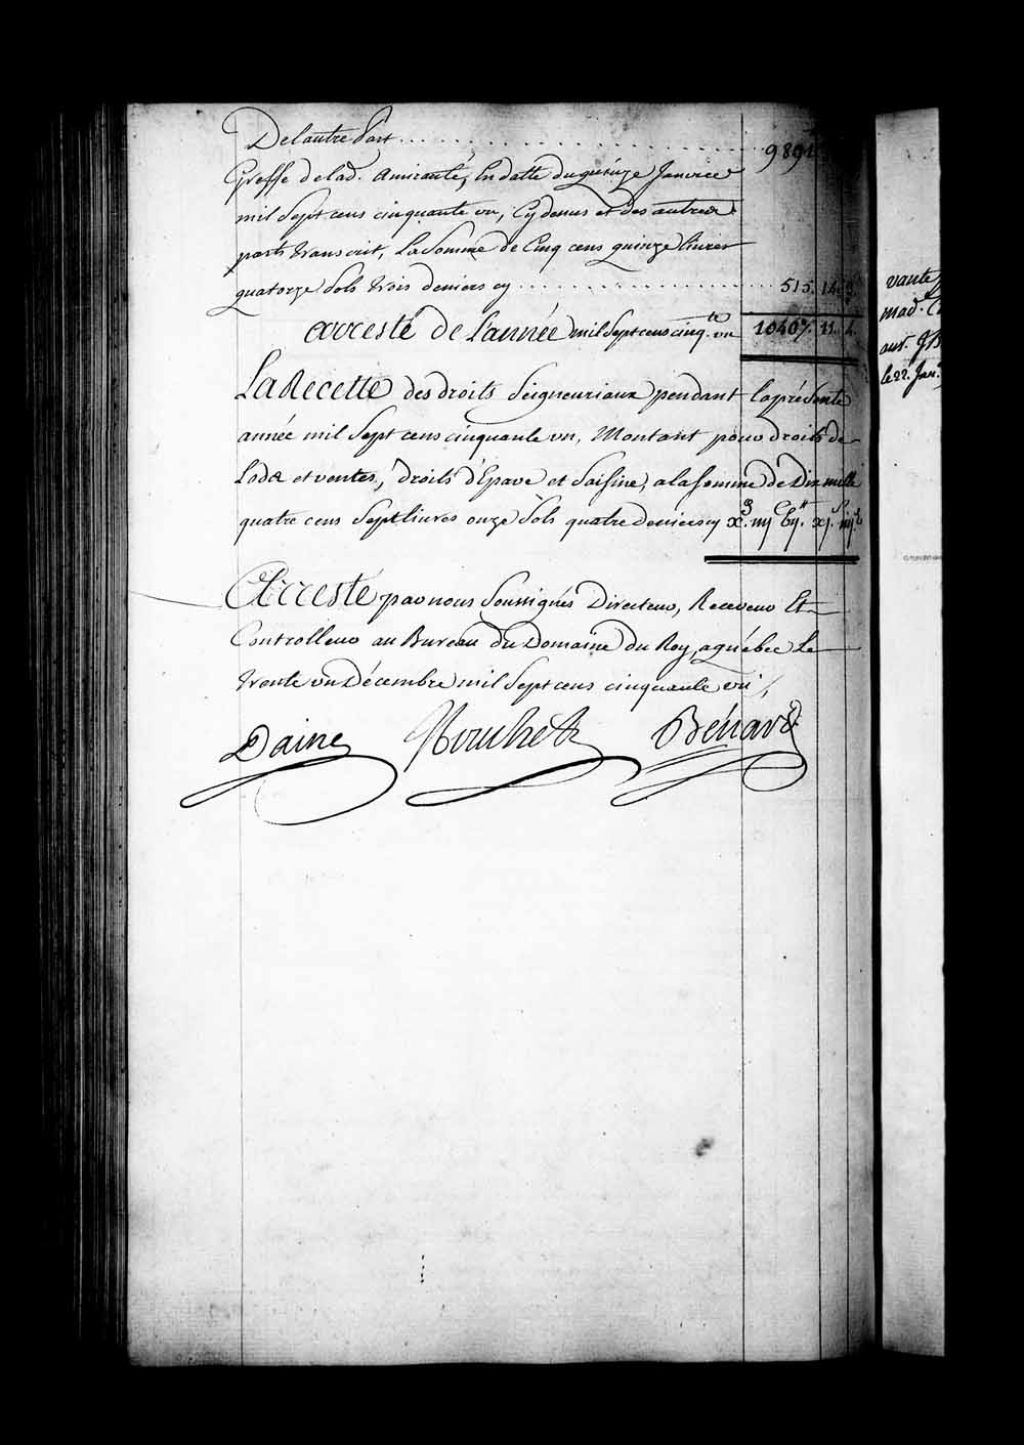 De l'autre Part . . . . . . . . . . 9891
Greffe de lad. Amirauté, En datte du quinze Janvier
mil Sept cens cinquante un, Cy dessus et des autres
parts transcrit, La Somme de Cinq cens quinze livres
quatorze Sols trois deniers cy . . . . . . . . . . 515. 14. 3
Arresté de L'année mil Sept cens cinq.te un 10407. 11. 4.
La Recette des droits Seigneuriaux pendant la présente
année mil Sept cens cinquante un, Montant pour droits de
Lods et ventes, droits d'Epave et Saisine, a la somme de Dix mille
quatre cens Sept livres onze Sols quatre deniers cy
Arresté par nous Soussignés Directeur, Receveur Et
Controlleur au Bureau du Domaine du Roy, a québec Le
trente un Décembre mil Sept cens cinquante un,
Daine Bénard
vante
mad.
aut.
le 22. Jan.